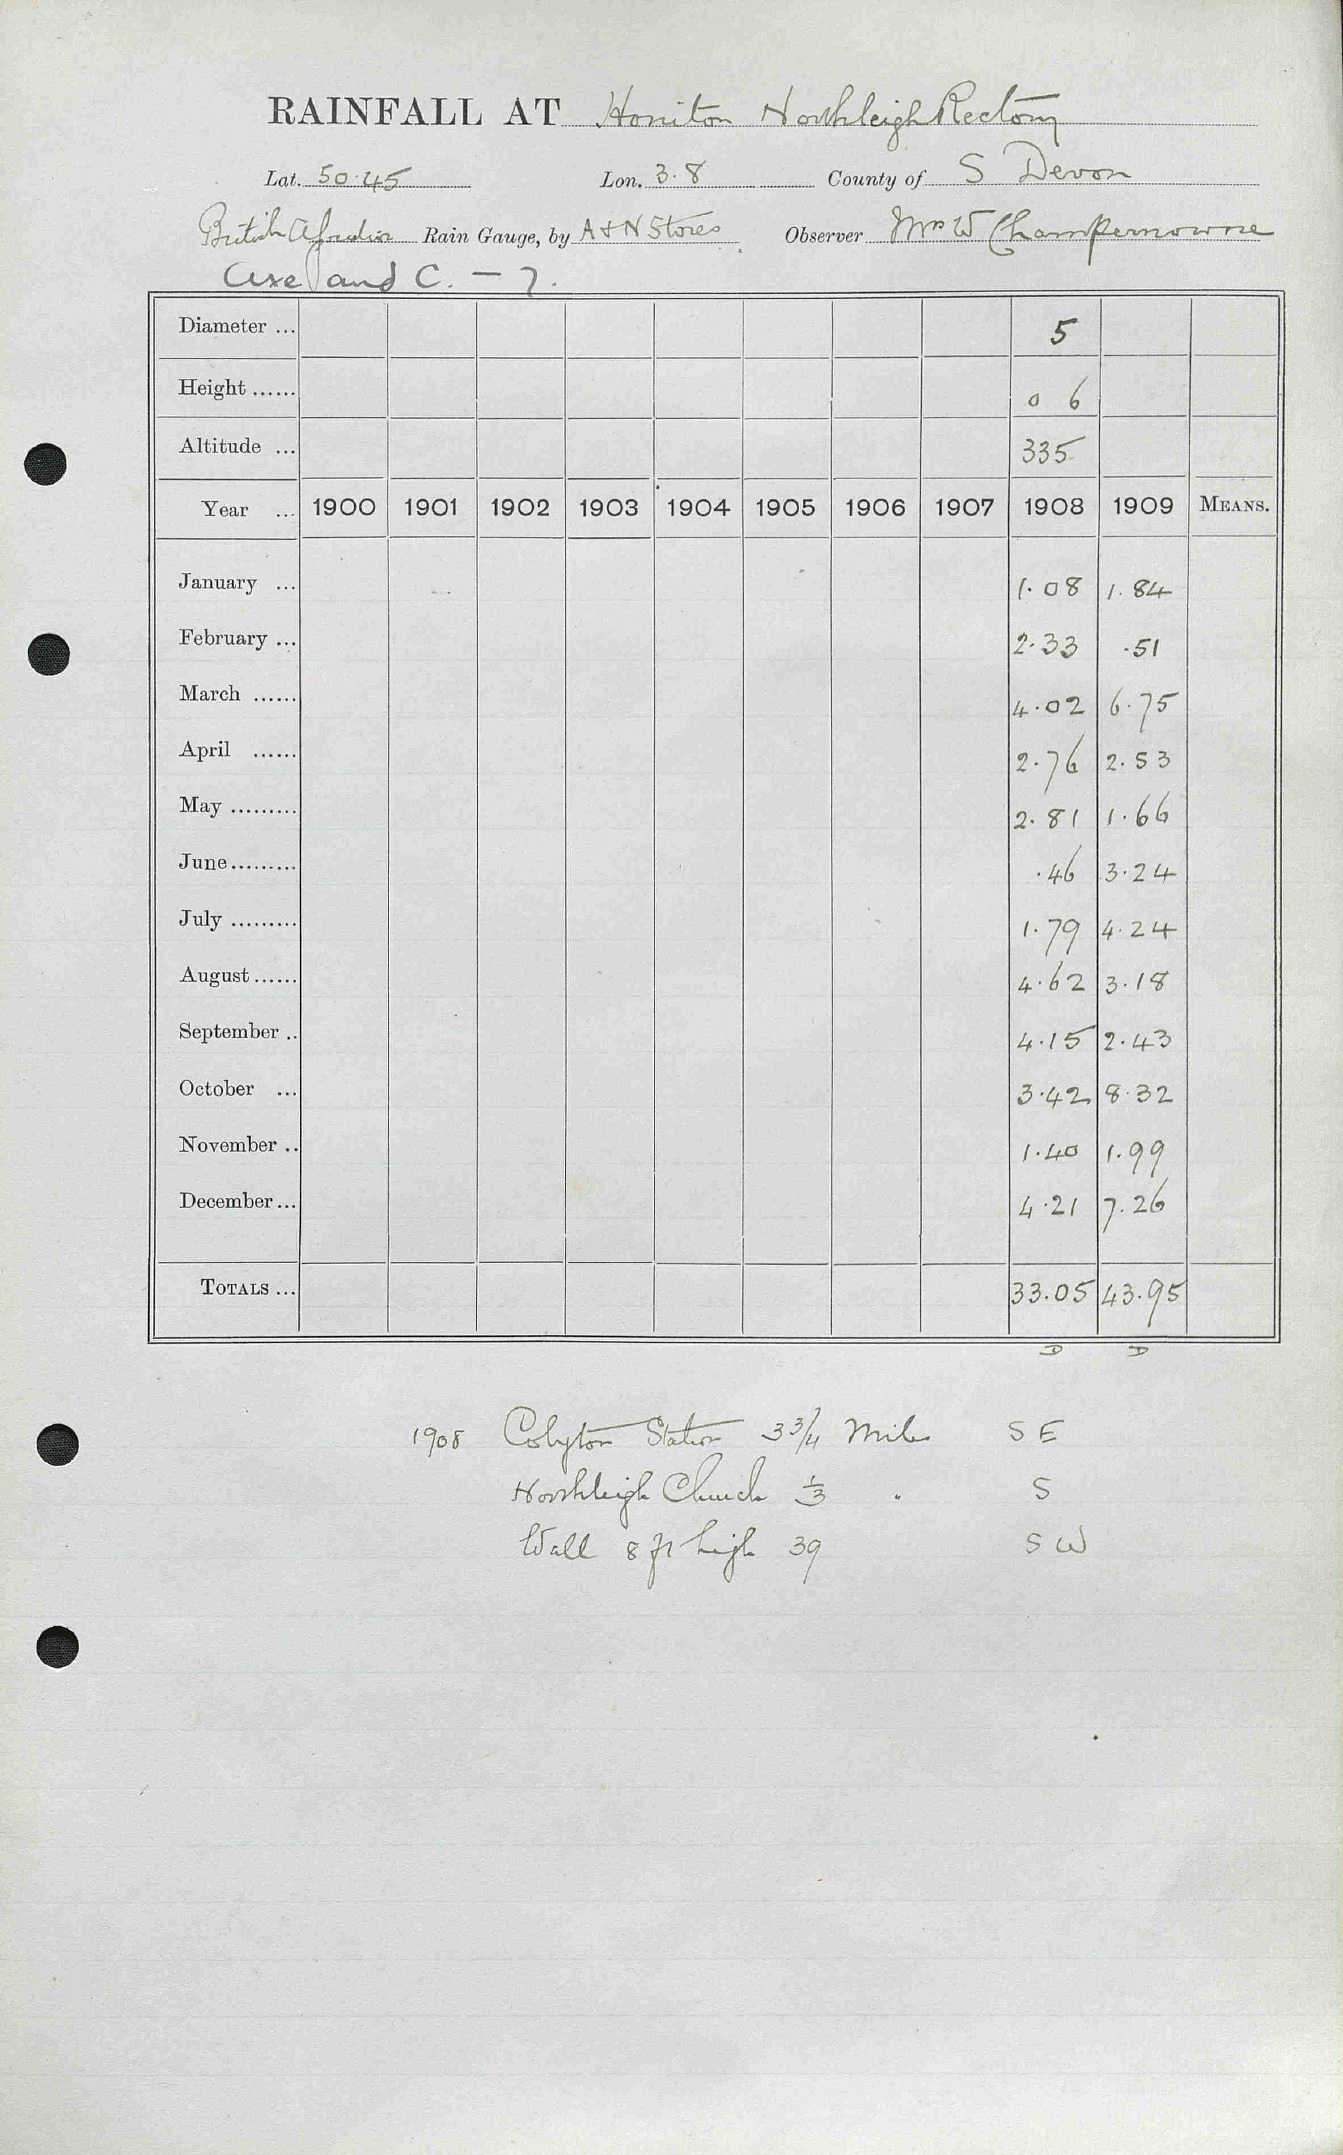 RAINFALL AT Honiton Northleigh Rectory
Lat. 50.45 Lon. 3.8 County of S Devon
British Rain Gauge, by A & N Stores Observer Mrs W Champernowne
Axe and C. — 7.
Diameter ... 5
Height ...... 0 6
Altitude ... 335
Year ... 1900 1901 1902 1903 1904 1905 1906 1907 1908 1909 MEANS.
January ... 1.08 1.84
February ... 2.33 .51
March ...... 4.02 6.75
April ...... 2.76 2.53
May ......... 2.81 1.66
June ......... .46 3.24
July ......... 1.79 4.24
August ...... 4.62 3.18
September .. 4.15 2.43
October ... 3.42 8.32
November .. 1.40 1.99
December ... 4.21 7.26
TOTALS ... 33.05 43.95
D D
1908 Colyton Station 3 3/4 Miles S E
Northleigh Church 1/3 " S
Wall 8 ft high 39 S W